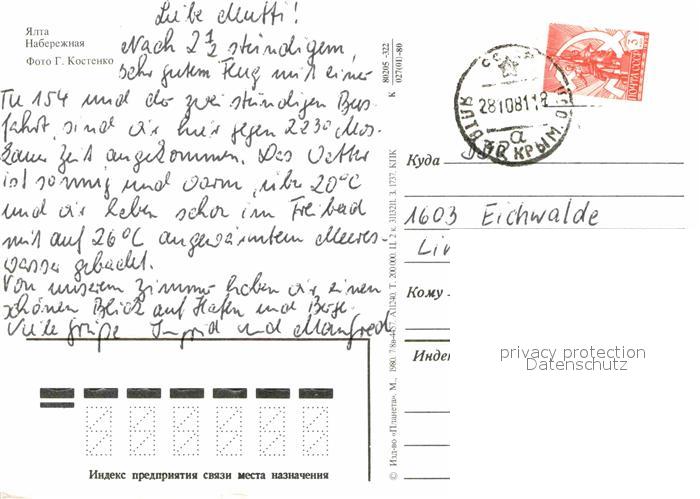 Ялта
Набережная
Фото Г. Костенко
Liebe Mutti!
Nach 2 1/2 stündigem,
sehr gutem Flug mit einer
TU 154 und der zweistündigen Bus-
fahrt, sind wir hier gegen 22 30 Mos-
kauer Zeit angekommen. Das Wetter
ist sonnig und warm, über 20°C
und wir haben schon im Freibad
mit auf 26°C angewärmtem Meeres-
wasser gebadet.
Von unserem Zimmer haben wir einen
schönen Blick auf Hafen und Berge.
Viele Grüße Ingrid und Manfred
Индекс предприятия связи места назначения
80205 -322
К 027(01)-80
© Изд-во «Планета». М., 1980. 7/8в-4457. А11240. Т. 200 000. Ц. 2 к. 3113211. З. 1737. КПК
ПОЧТА СССР
3
28108112
ЯЛТА
а
КРЫМ. ОБЛ.
Куда
DDR
1603 Eichwalde
Lin
Кому
Индекс
privacy protection
Datenschutz